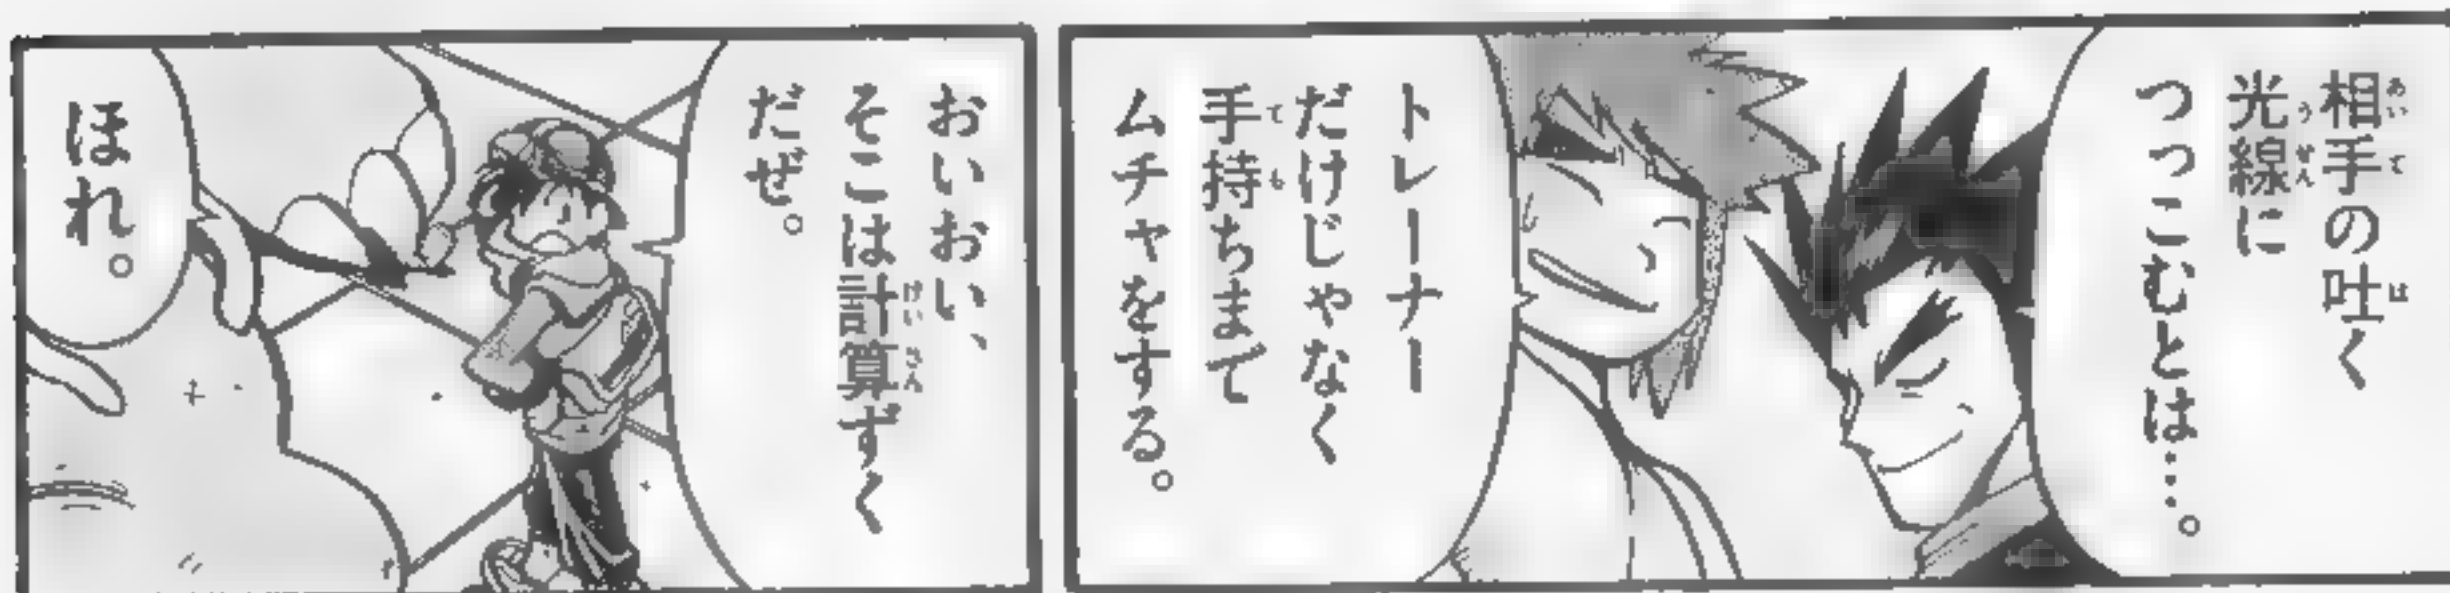 相手の吐く
光線に
つっこむとは…。
トレーナー
だけじゃなく
手持ちまで
ムチャをする。
おいおい、
そこは計算ずく
だぜ。
ほれ。